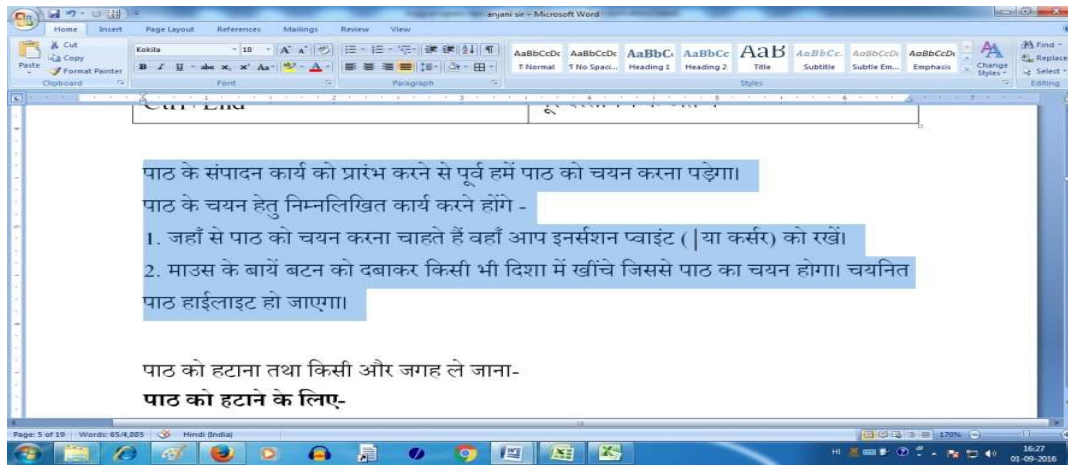 anjani sir - Microsoft Word
Home Insert Page Layout References Mailings Review View
Cut
Copy
Format Painter
Paste
Clipboard
Kokila 18
Font
Paragraph
AaBbCcDc AaBbCcDc AaBbC AaBbCc AaB AaBbCc. AaBbCcDc AaBbCcDc
¶ Normal ¶ No Spaci... Heading 1 Heading 2 Title Subtitle Subtle Em... Emphasis
Change Styles
Styles
Find
Replace
Select
Editing
Ctrl+End
पाठ के संपादन कार्य को प्रारंभ करने से पूर्व हमें पाठ को चयन करना पड़ेगा।
पाठ के चयन हेतु निम्नलिखित कार्य करने होंगे -
1. जहाँ से पाठ को चयन करना चाहते हैं वहाँ आप इनर्सशन प्वाइंट ( |या कर्सर) को रखें।
2. माउस के बायें बटन को दबाकर किसी भी दिशा में खींचे जिससे पाठ का चयन होगा। चयनित
पाठ हाईलाइट हो जाएगा।
पाठ को हटाना तथा किसी और जगह ले जाना-
पाठ को हटाने के लिए-
Page: 5 of 19 Words: 65/4,885 Hindi (India) 170%
HI 16:27
01-09-2016